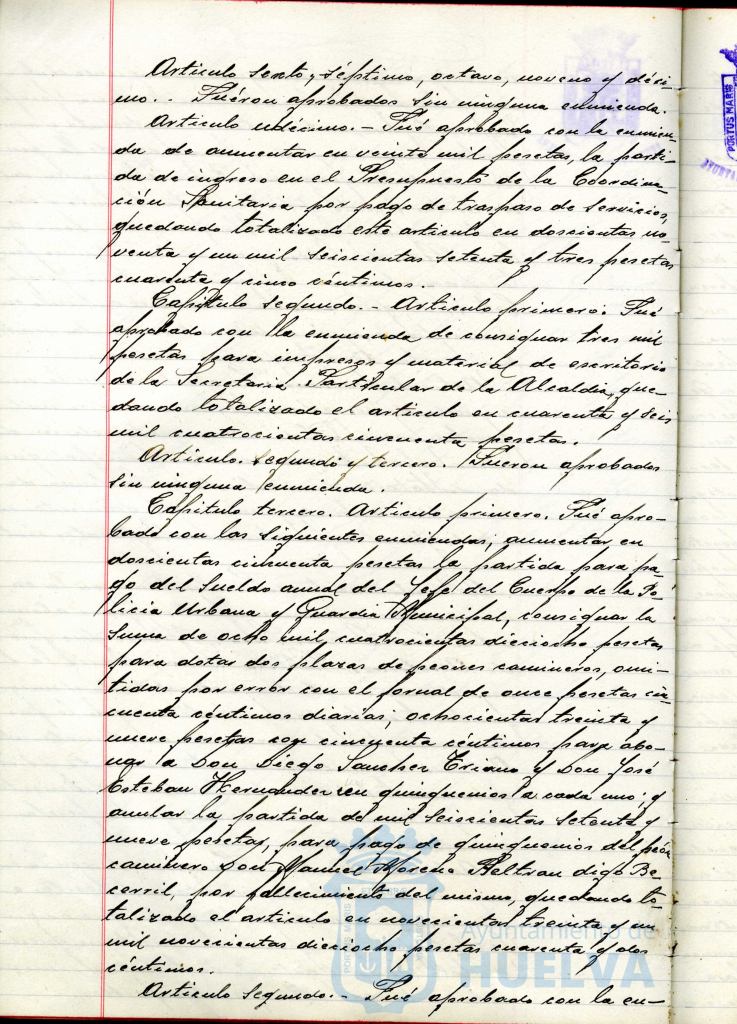 Artículo sexto, séptimo, octavo, noveno y déci-
mo.- Fuéron aprobados sin ninguna enmienda.
Artículo undécimo.- Fué aprobado con la enmien-
da de aumentar en veinte mil pesetas, la parti-
da de ingreso en el Presupuesto de la Coordina-
ción Sanitaria por pago de traspaso de servicios,
quedando totalizado este artículo en doscientas no-
venta y un mil seiscientas setenta y tres pesetas
cuarenta y cinco céntimos.
Capítulo segundo.- Artículo primero: Fué
aprobado con la enmienda de consignar tres mil
pesetas para impresos y material de escritorio
de la Secretaria Particular de la Alcaldía, que-
dando totalizado el artículo en cuarenta y seis
mil cuatrocientas cincuenta pesetas.
Artículo segundo y tercero. Fueron aprobados
sin ninguna enmienda.
Capítulo tercero. Artículo primero. Fué apro-
bado con las siguientes enmiendas; aumentar en
doscientas cincuenta pesetas la partida para pa-
go del sueldo anual del Jefe del Cuerpo de la Po-
licia Urbana y Guardia Municipal, consignar la
suma de ocho mil cuatrocientas dieciocho pesetas
para dotar dos plazas de peones camineros, omi-
tidas por error con el jornal de once pesetas cin-
cuenta céntimos diarias; ochocientas treinta y
nueve pesetas con cincuenta céntimos para abo-
nar a Don Diego Sanchez Triano y Don José
Esteban Hernandez en quinquenios a cada uno; y
anular la partida de mil seiscientas setenta y
nueve pesetas, para pago de quinquenios del peón
caminero Don Manuel Moreno Beltran digo Be-
cerril, por fallecimiento del mismo, quedando to-
talizado el artículo en novecientas treinta y un
mil novecientas dieciocho pesetas cuarenta y dos
céntimos.
Artículo segundo.- Fué aprobado con la en-
PORTUS MARIS
Ayuntamiento de
HUELVA